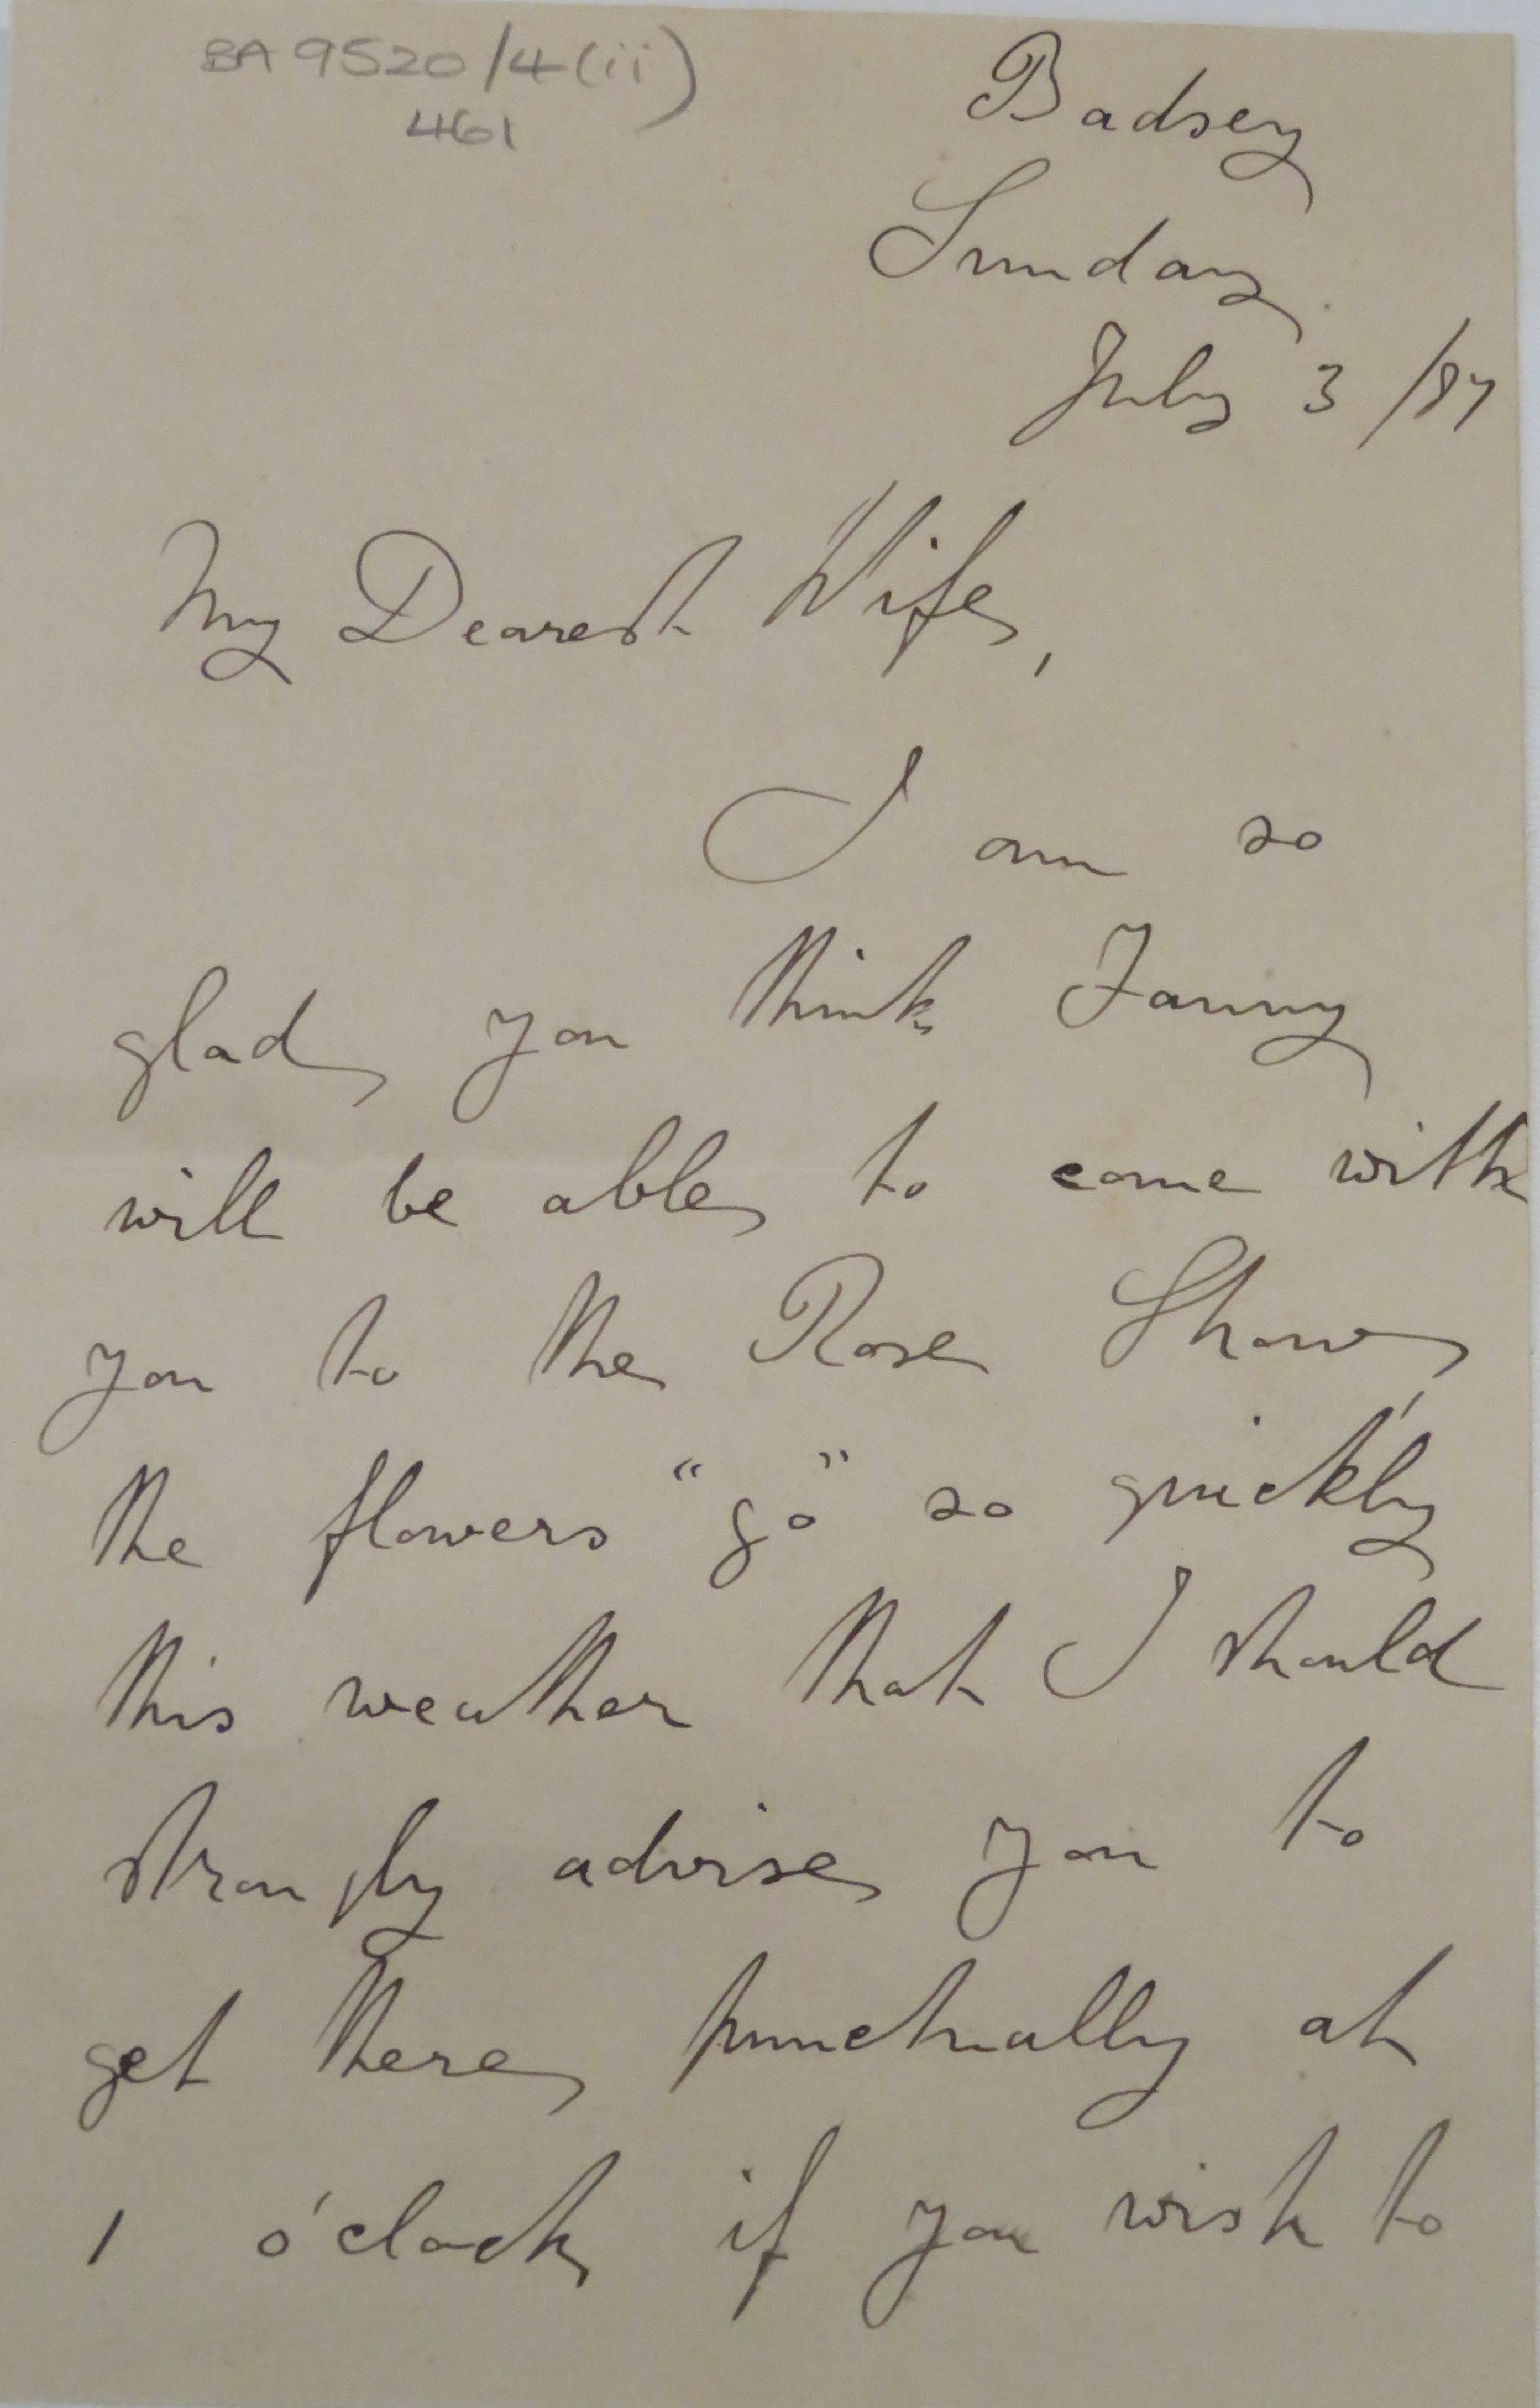 BA 9520/4(ii)
461
Badsey
Sunday
July 3 /87
My Dearest Wife,
I am so
glad you think Fanny
will be able to come with
you to the Rose Show
the flowers "go" so quickly
this weather that I should
strongly advise you to
get there punctually at
1 o'clock if you wish to